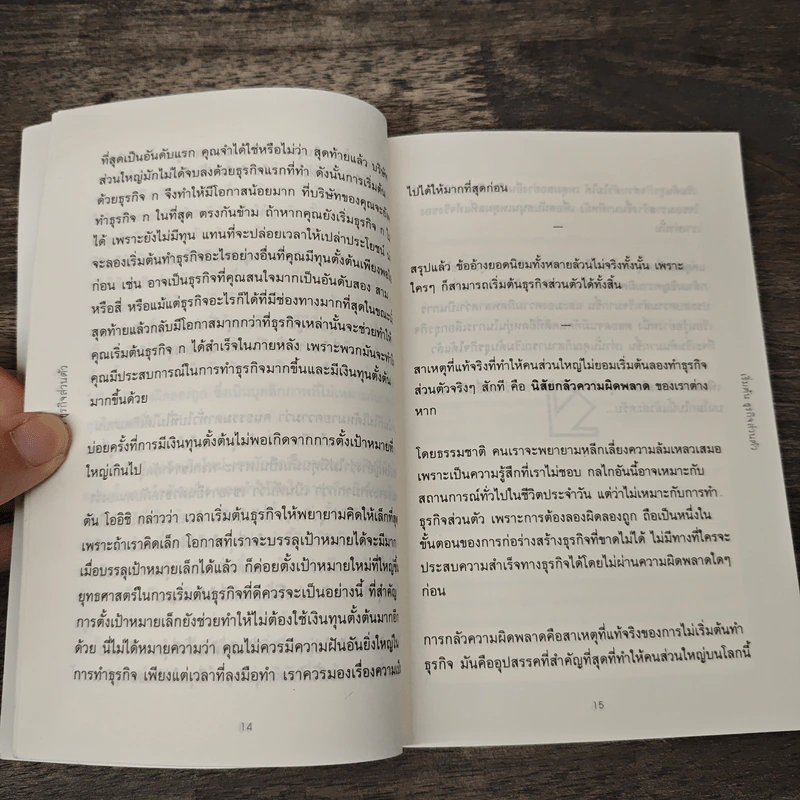 ที่สุดเป็นอันดับแรก คุณจำได้ใช่หรือไม่ว่า สุดท้ายแล้ว บริษัท
ส่วนใหญ่มักไม่ได้จบลงด้วยธุรกิจแรกที่ทำ ดังนั้นการเริ่มต้น
ด้วยธุรกิจ ก จึงทำให้มีโอกาสน้อยมาก ที่บริษัทของคุณจะ
ทำธุรกิจ ก ในที่สุด ตรงกันข้าม ถ้าหากคุณยังเริ่มธุรกิจ ก ไม่
ได้ เพราะยังไม่มีทุน แทนที่จะปล่อยเวลาให้เปล่าประโยชน์
จะลองเริ่มต้นทำธุรกิจอะไรอย่างอื่นที่คุณมีทุนตั้งต้นเพียงพอ
ก่อน เช่น อาจเป็นธุรกิจที่คุณสนใจมากเป็นอันดับสอง สาม
หรือสี่ หรือแม้แต่ธุรกิจอะไรก็ได้ที่มีช่องทางมากที่สุดในขณะ
สุดท้ายแล้วกลับมีโอกาสมากกว่าที่ธุรกิจเหล่านั้นจะช่วยทำให้
คุณเริ่มต้นธุรกิจ ก ได้สำเร็จในภายหลัง เพราะพวกมันจะทำให้
คุณมีประสบการณ์ในการทำธุรกิจมากขึ้นและมีเงินทุนตั้งต้น
มากขึ้นด้วย
บ่อยครั้งที่การมีเงินทุนตั้งต้นไม่พอเกิดจากการตั้งเป้าหมายที่
ใหญ่เกินไป
ตัน โออิชิ กล่าวว่า เวลาเริ่มต้นธุรกิจให้พยายามคิดให้เล็กที่สุด
เพราะถ้าเราคิดเล็ก โอกาสที่เราจะบรรลุเป้าหมายได้จะมีมาก
เมื่อบรรลุเป้าหมายเล็กได้แล้ว ก็ค่อยตั้งเป้าหมายใหม่ที่ใหญ่ขึ้น
ยุทธศาสตร์ในการเริ่มต้นธุรกิจที่ดีควรจะเป็นอย่างนี้ ที่สำคัญ
การตั้งเป้าหมายเล็กยังช่วยทำให้ไม่ต้องใช้เงินทุนตั้งต้นมากอีก
ด้วย นี่ไม่ได้หมายความว่า คุณไม่ควรมีความฝันอันยิ่งใหญ่ใน
การทำธุรกิจ เพียงแต่เวลาที่ลงมือทำ เราควรมองเรื่องความเป็น
14
ธุรกิจส่วนตัว
ไปได้ให้มากที่สุดก่อน
—
สรุปแล้ว ข้ออ้างยอดนิยมทั้งหลายล้วนไม่จริงทั้งนั้น เพราะ
ใครๆ ก็สามารถเริ่มต้นธุรกิจส่วนตัวได้ทั้งสิ้น
—
สาเหตุที่แท้จริงที่ทำให้คนส่วนใหญ่ไม่ยอมเริ่มต้นลองทำธุรกิจ
ส่วนตัวจริงๆ สักที คือ นิสัยกลัวความผิดพลาด ของเราต่าง
หาก
โดยธรรมชาติ คนเราจะพยายามหลีกเลี่ยงความล้มเหลวเสมอ
เพราะเป็นความรู้สึกที่เราไม่ชอบ กลไกอันนี้อาจเหมาะกับ
สถานการณ์ทั่วไปในชีวิตประจำวัน แต่ว่าไม่เหมาะกับการทำ
ธุรกิจส่วนตัว เพราะการต้องลองผิดลองถูก ถือเป็นหนึ่งใน
ขั้นตอนของการก่อร่างสร้างธุรกิจที่ขาดไม่ได้ ไม่มีทางที่ใครจะ
ประสบความสำเร็จทางธุรกิจได้โดยไม่ผ่านความผิดพลาดใดๆ
ก่อน
การกลัวความผิดพลาดคือสาเหตุที่แท้จริงของการไม่เริ่มต้นทำ
ธุรกิจ มันคืออุปสรรคที่สำคัญที่สุดที่ทำให้คนส่วนใหญ่บนโลกนี้
15
เริ่มต้น ธุรกิจส่วนตัว